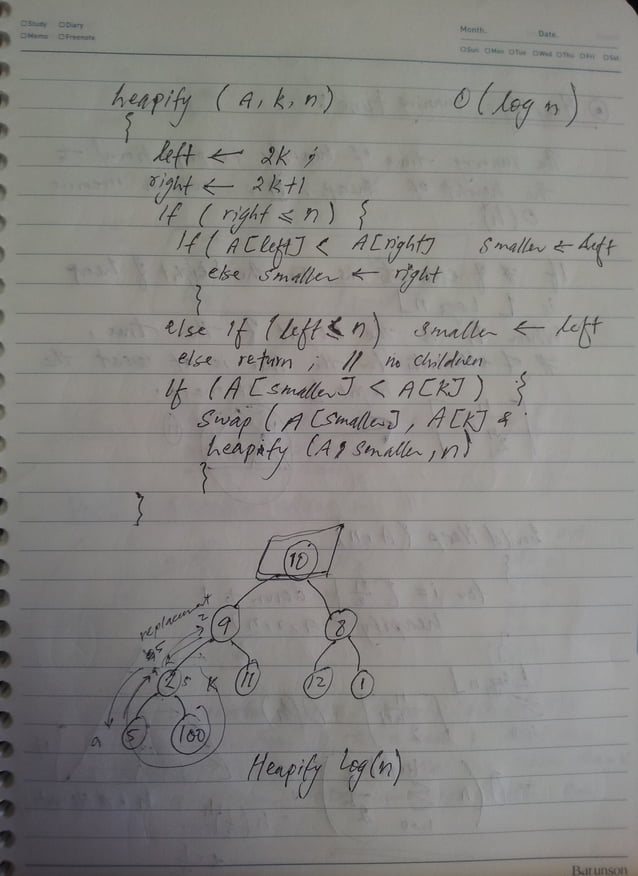 □Study □Diary
□Memo □Freenote
Month. Date.
□Sun □Mon □Tue □Wed □Thu □Fri □Sat
heapify (A, k, n) O(log n)
{
left ← 2k ;
right ← 2k+1
If (right ≤ n) {
If (A[left] < A[right] smaller ← left
else smaller ← right
}
else if (left ≤ n) smaller ← left
else return ; // no children
If (A[smaller] < A[K]) {
Swap (A[smaller], A[K]
heapify (A, smaller, n)
}
}
10
replacement 2 9 8
2 5 K 11 12 1
a 5 100
Heapify log(n)
Barunson